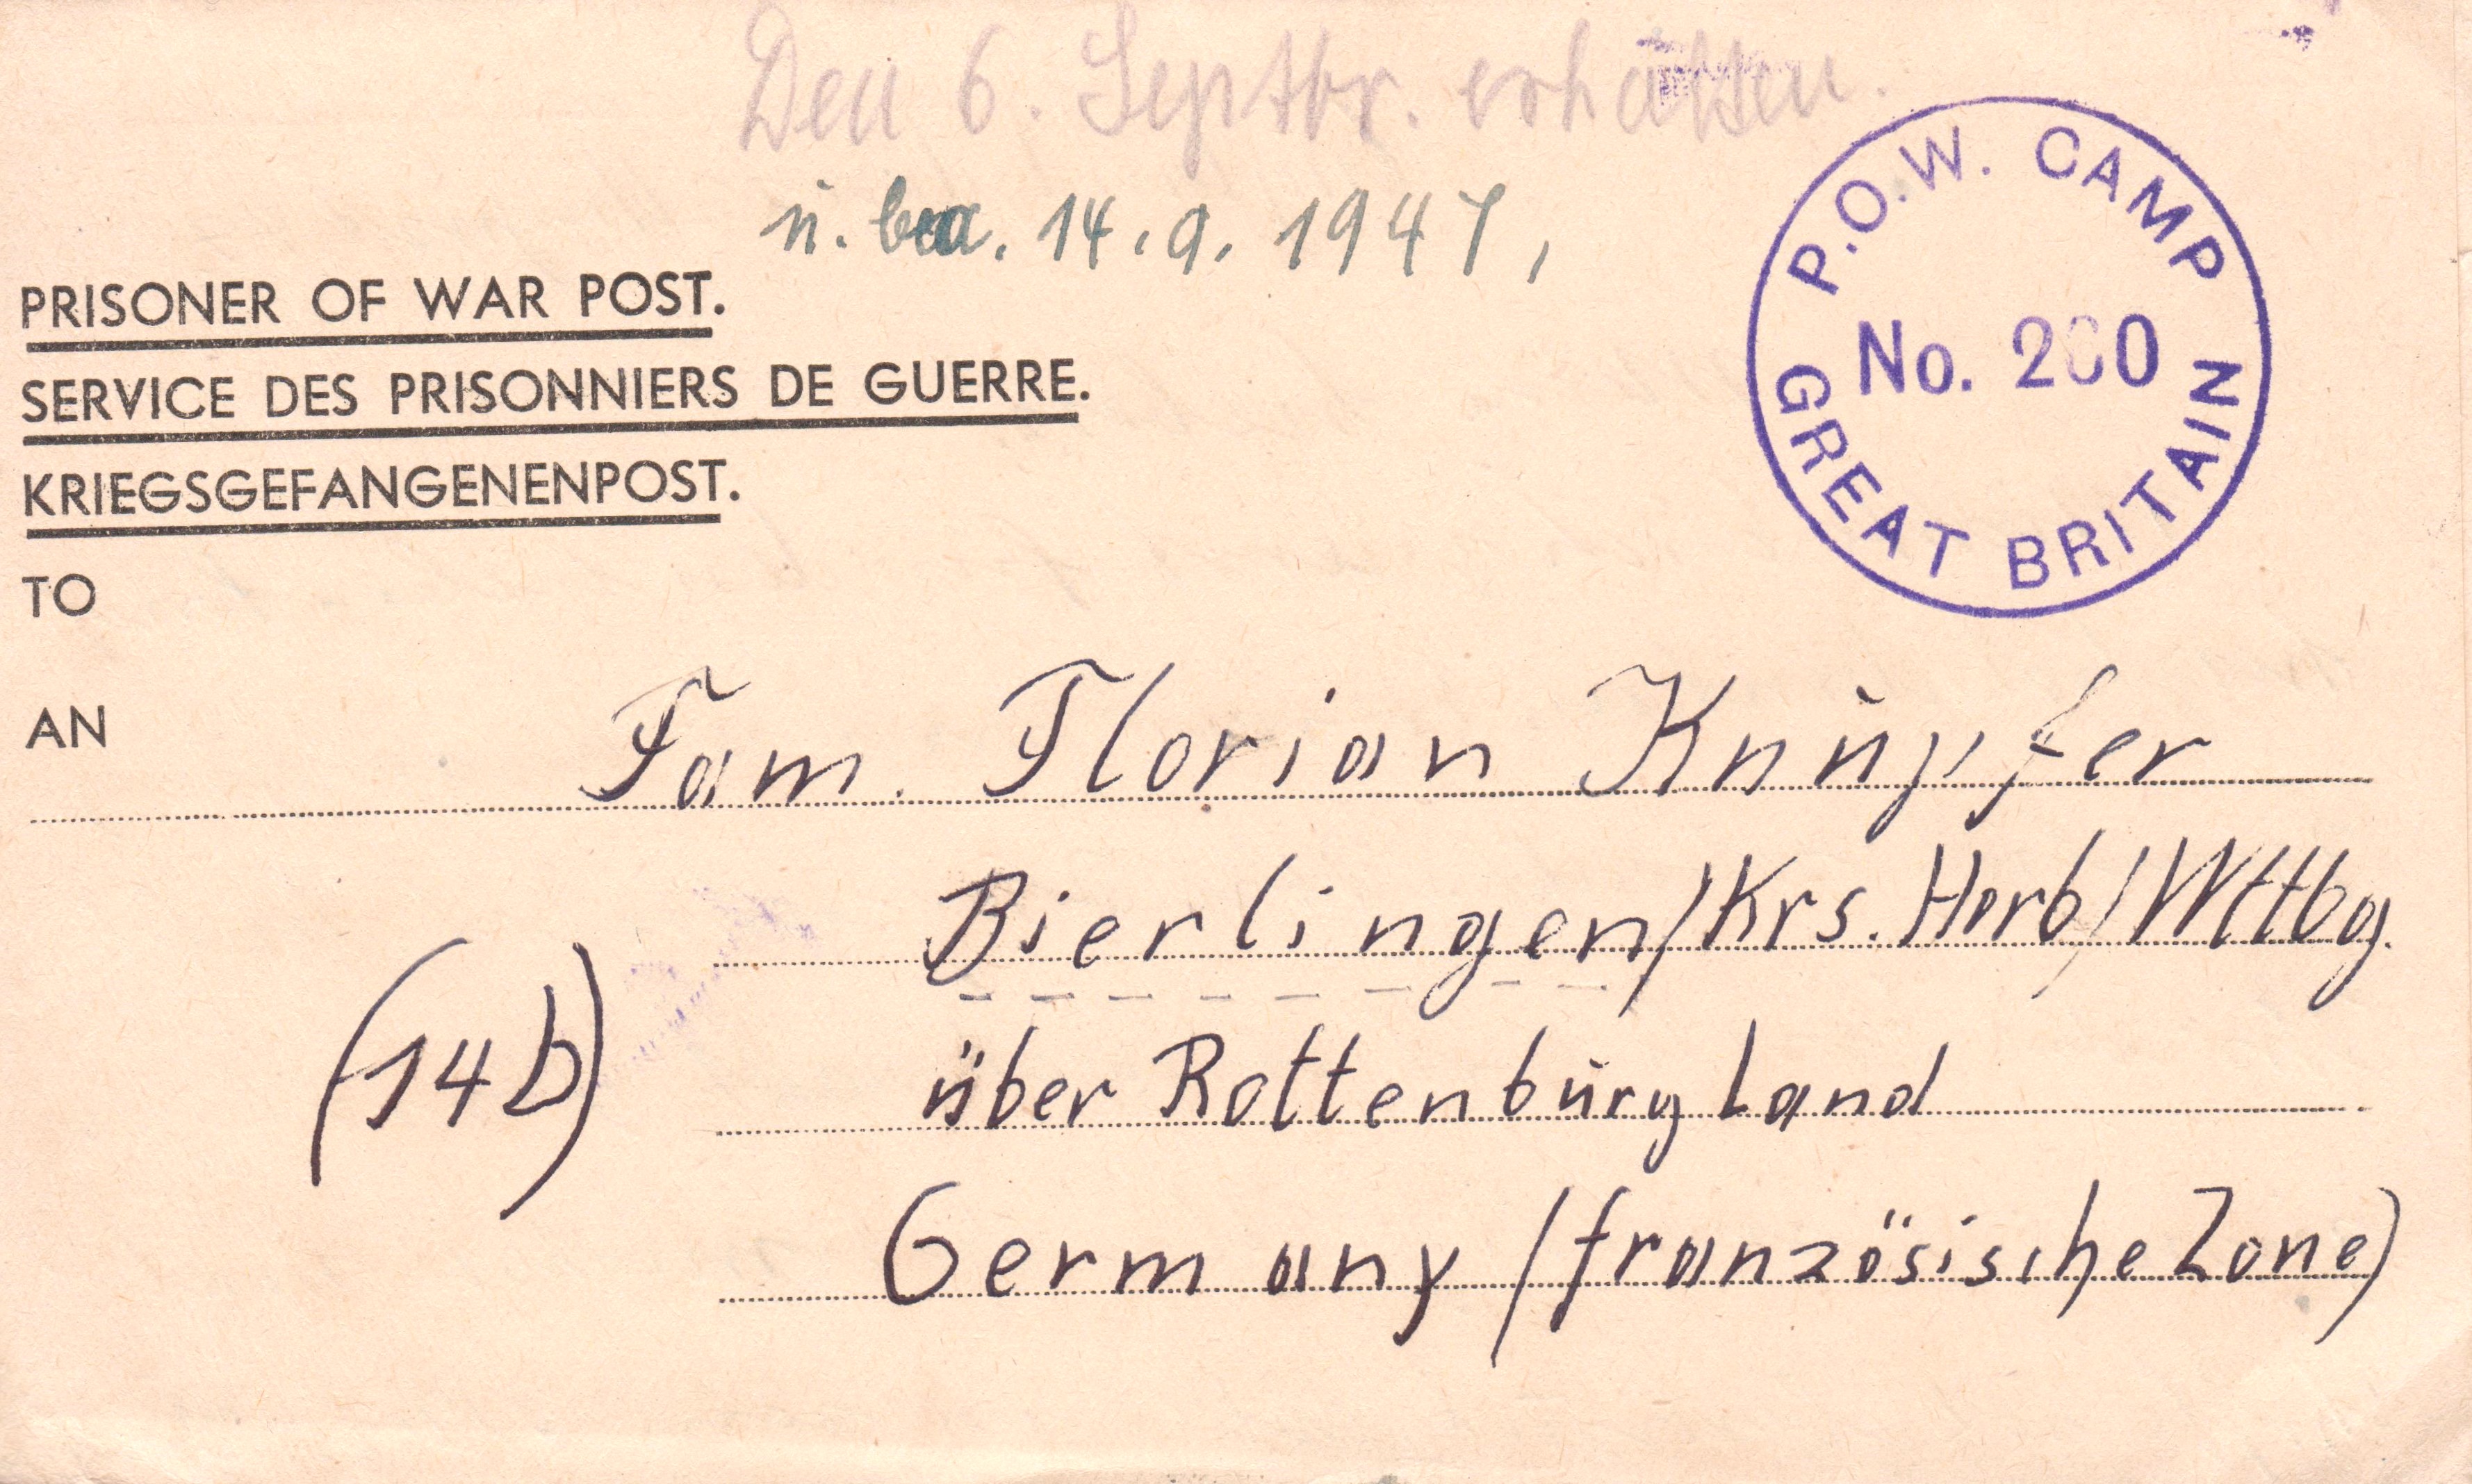 Den 6. Septbr. erhalten.
ŭ. bea. 14.9.1947,
PRISONER OF WAR POST.
SERVICE DES PRISONNIERS DE GUERRE.
KRIEGSGEFANGENENPOST.
P.O.W. CAMP
No. 200
GREAT BRITAIN
TO
AN
Fam. Florian Knüpfer
Bierlingen/Krs. Horb/Wttbg.
(14b)
über Rottenbŭrg Land
Germany (französische Zone)